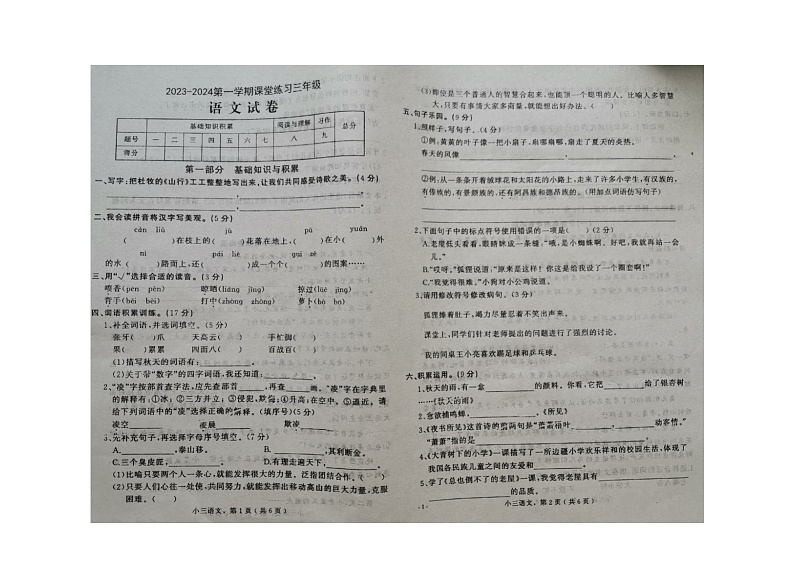 2023-2024第一学期课堂练习三年级
语文试卷
基础知识积累 阅读与理解 习作 总分
题号 一 二 三 四 五 六 七 八 九
得分
第一部分 基础知识与积累
一、写字:把杜牧的《山行》工工整整地写出来,让我们共同感受诗歌之美。(4分)
二、我会读拼音将汉字写美观。(5分)
cán liú dù pū pō yuán
( )在枝上的( )花落在地上,( )在小( )外
的水( )路面上,还( )成一个个( )的图案……
三、用“√”选择合适的读音。(3分)
喷香(pēn pèn) 晾晒(liāng jǐng) 掠过(lüè jīng)
背手(bēi bèi) 打中(zhōng zhòng) 萝卜(bǔ bo)
四、词语积累训练。(17分)
1、补全词语,并选词填空。(5分)
张牙( )爪 天高云( ) 手忙( )( )
( )果( )累累 四面八( ) 百战百( )
(1)描写秋天的词语有:
(2)关于带“数字”的四字词语,我还知道:
2、“凌”字按部首查字法,应先查部首 ,再查 画。“凌”字在字典里
的解释有:①冰;②三方并立;③侵犯,欺压;④升高;在空中。⑤逼近。请
给下列词语中的“凌”选择正确的解释。(填序号)(5分)
凌空 凌晨 欺凌
3、先补充句子,再选择字母序号填空。(7分)
A. ,泰山移。 B. ,其利断金。
C.三个臭皮匠, D.有理走遍天下,
(1)比喻只要两个人一条心,就能发挥很大的力量。泛指团结合作。( )
(2)只要人们心往一处使,共同努力,就能发挥出移动高山的巨大力量,克服
困难。( )
小三语文、第1页(共6页)
(3)即使是三个普通人的智慧合起来,也能顶一个聪明的人。比喻人多智慧
大,只要有事情大家多商量,就能想出好办法。( )
五、句子乐园。(9分)
1、照样子,写句子。(4分)
①例:黄黄的叶子像一把把小扇子,扇哪扇哪,扇走了夏天的炎热。
春天的风像 ,
②例:从一条条开着绒球花和太阳花的小路上,走来了许多小学生,有汉族的,
有傣族的,有景颇族的,还有阿昌族和德昂族的。(用加点词语仿写句子)
2、下面句子中的标点符号使用错误的一项是( )(2分)
A.老屋低头看看,眼睛眯成一条缝:“哦,是小蜘蛛啊。好吧,我就再站一会
儿。”
B.“哎呀。”狐狸说道:“原来是这样!你这是给我设了一个圈套啊!”
C.“我觉得很难。”小狗对小公鸡说道。
3、请用修改符号修改病句。(3分)
狐狸捧着肚子,竭力尽量忍着不笑出声来。
上课了,同学们针对老师提出的问题进行了强烈的讨论。
我的同桌王小亮喜欢踢足球和乒乓球。
六、积累运用。(9分)
1、秋天的雨,有一盒 的颜料。你看,它把 给了银杏树
……《秋天的雨》
2、意欲捕鸣蝉, 。《所见》
3、《夜书所见》这首诗的前两句是“萧萧梧叶 , 动客情。”
“萧萧”指的是 。
4、《大青树下的小学》一课描写了一所边疆小学欢乐祥和的校园生活,体现了
我国各民族儿童之间的友爱和 。
5、学了《总也倒不了的老屋》一课,我觉得老屋具有
的品质。
小三语文、第2页(共6页)